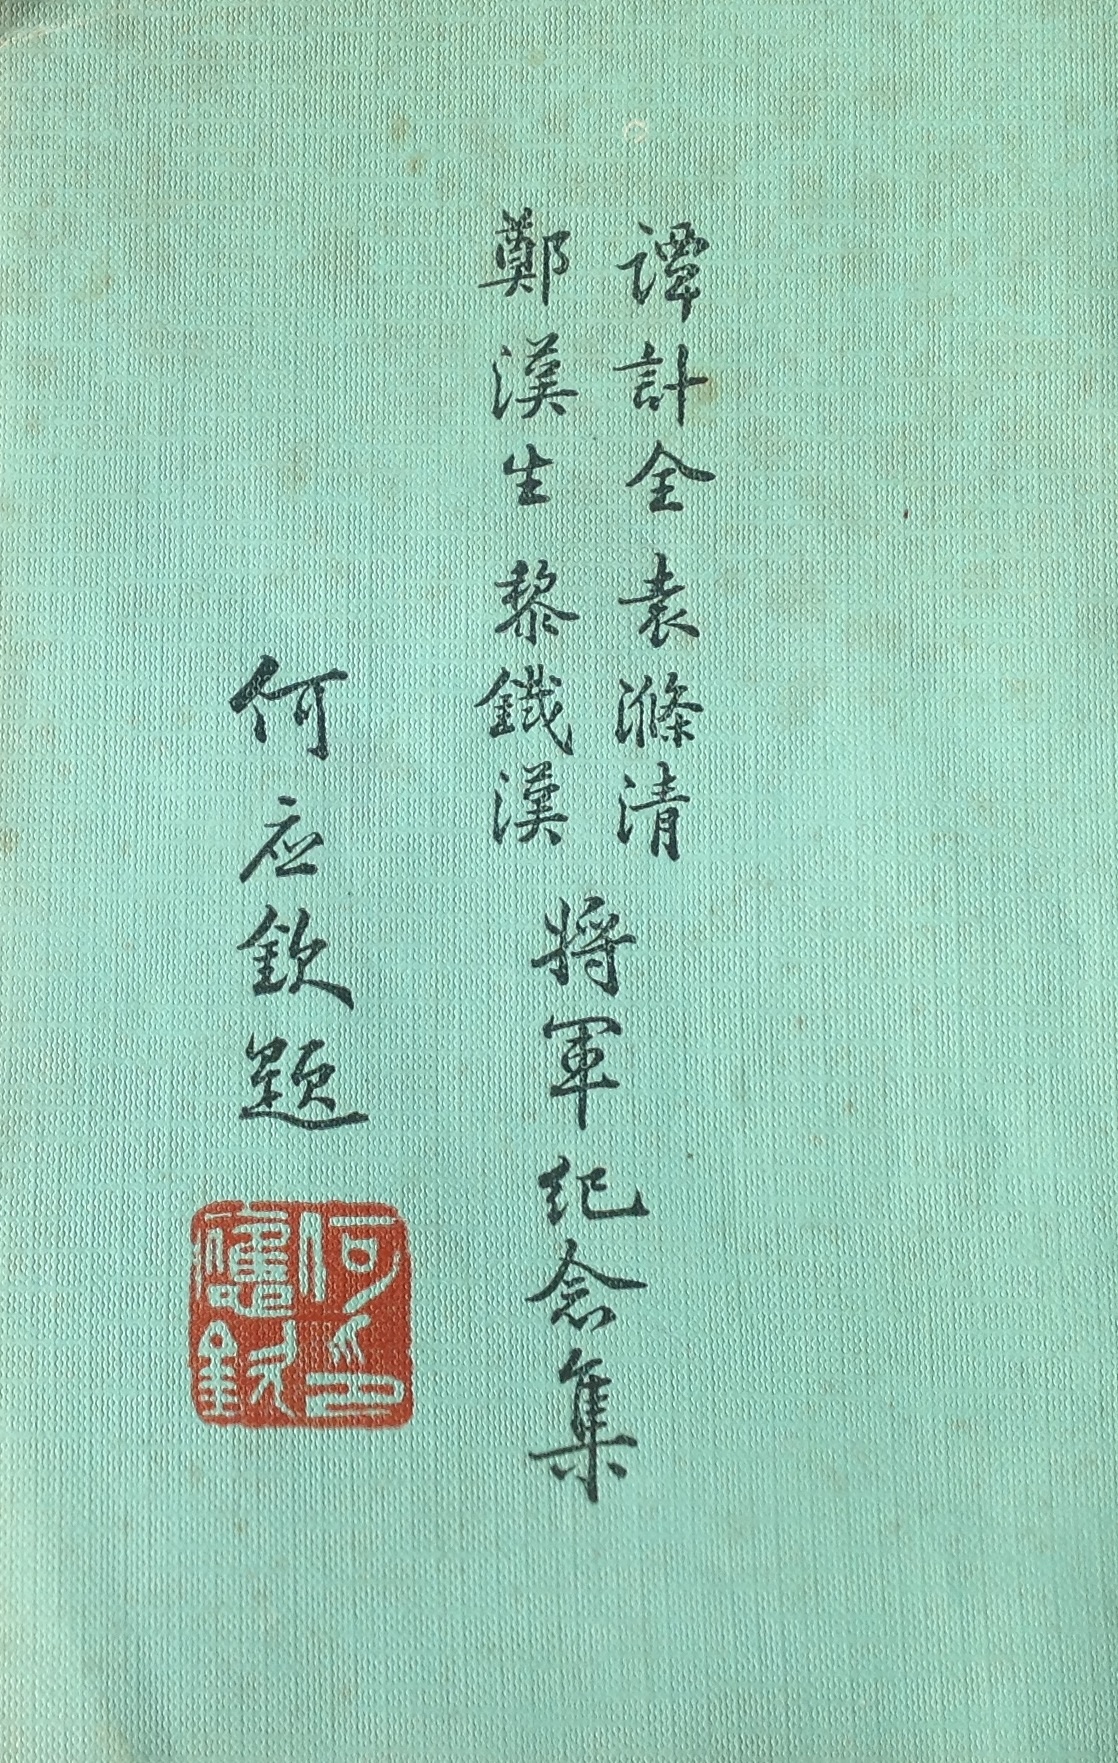 譚計全 袁滌清
鄭漢生 黎鐵漢
將軍紀念集
何应欽題
何應欽印